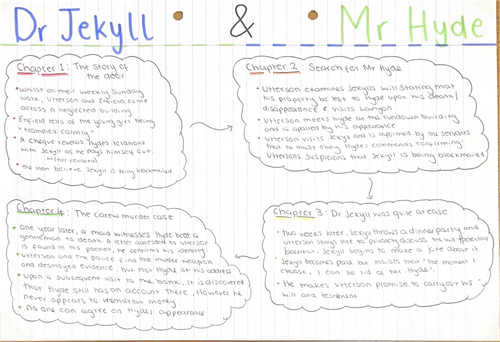 Dr Jekyll & Mr Hyde
Chapter 1: The Story of
the door
• Whilst on their weekly Sunday
walk, Utterson and Enfield come
across a neglected building
• Enfield tells of my young girl being
"trampled calmly"
• A cheque reveals Hydes relations
with Jekyll as he pays himself out
• The men believe Jekyll is being blackmailed
Chapter 2: Search for Mr Hyde
• Utterson examines Jekylls will stating that
his property be left to Hyde upon his death/
disappearance & visits Lanyon
• Utterson meets Hyde at the rundown building
and is apalled by his appearance
• Utterson visits Jekyll and is informed by his servants
that he must obey Hydes commands confirming
Uttersons suspicions that Jekyll is being blackmailed
Chapter 3: Dr Jekyll was quite at ease
• Two weeks later, Jekyll throws a dinner party and
Utterson stays late to privately discuss the will &
blackmail. Jekyll begins to make a joke about it
Jekyll becomes pale but insists that "the moment I
choose, I can be rid of Mr. Hyde".
• He makes Utterson promise to carry out his
will and testament
Chapter 4: The Carew murder case
• One year later, a maid witnesses Hyde beat a
gentleman to death. A letter adressed to Utterson
is found in his pocket, he confirms his identity
• Utterson and the police find the murder weapon
and destroyed evidence, but not Hyde at his address
• Upon a subsequent visit to the bank, it is discovered
that Hyde still has an account there, however he
never appears to withdraw money
• No one can agree on Hydes appearance